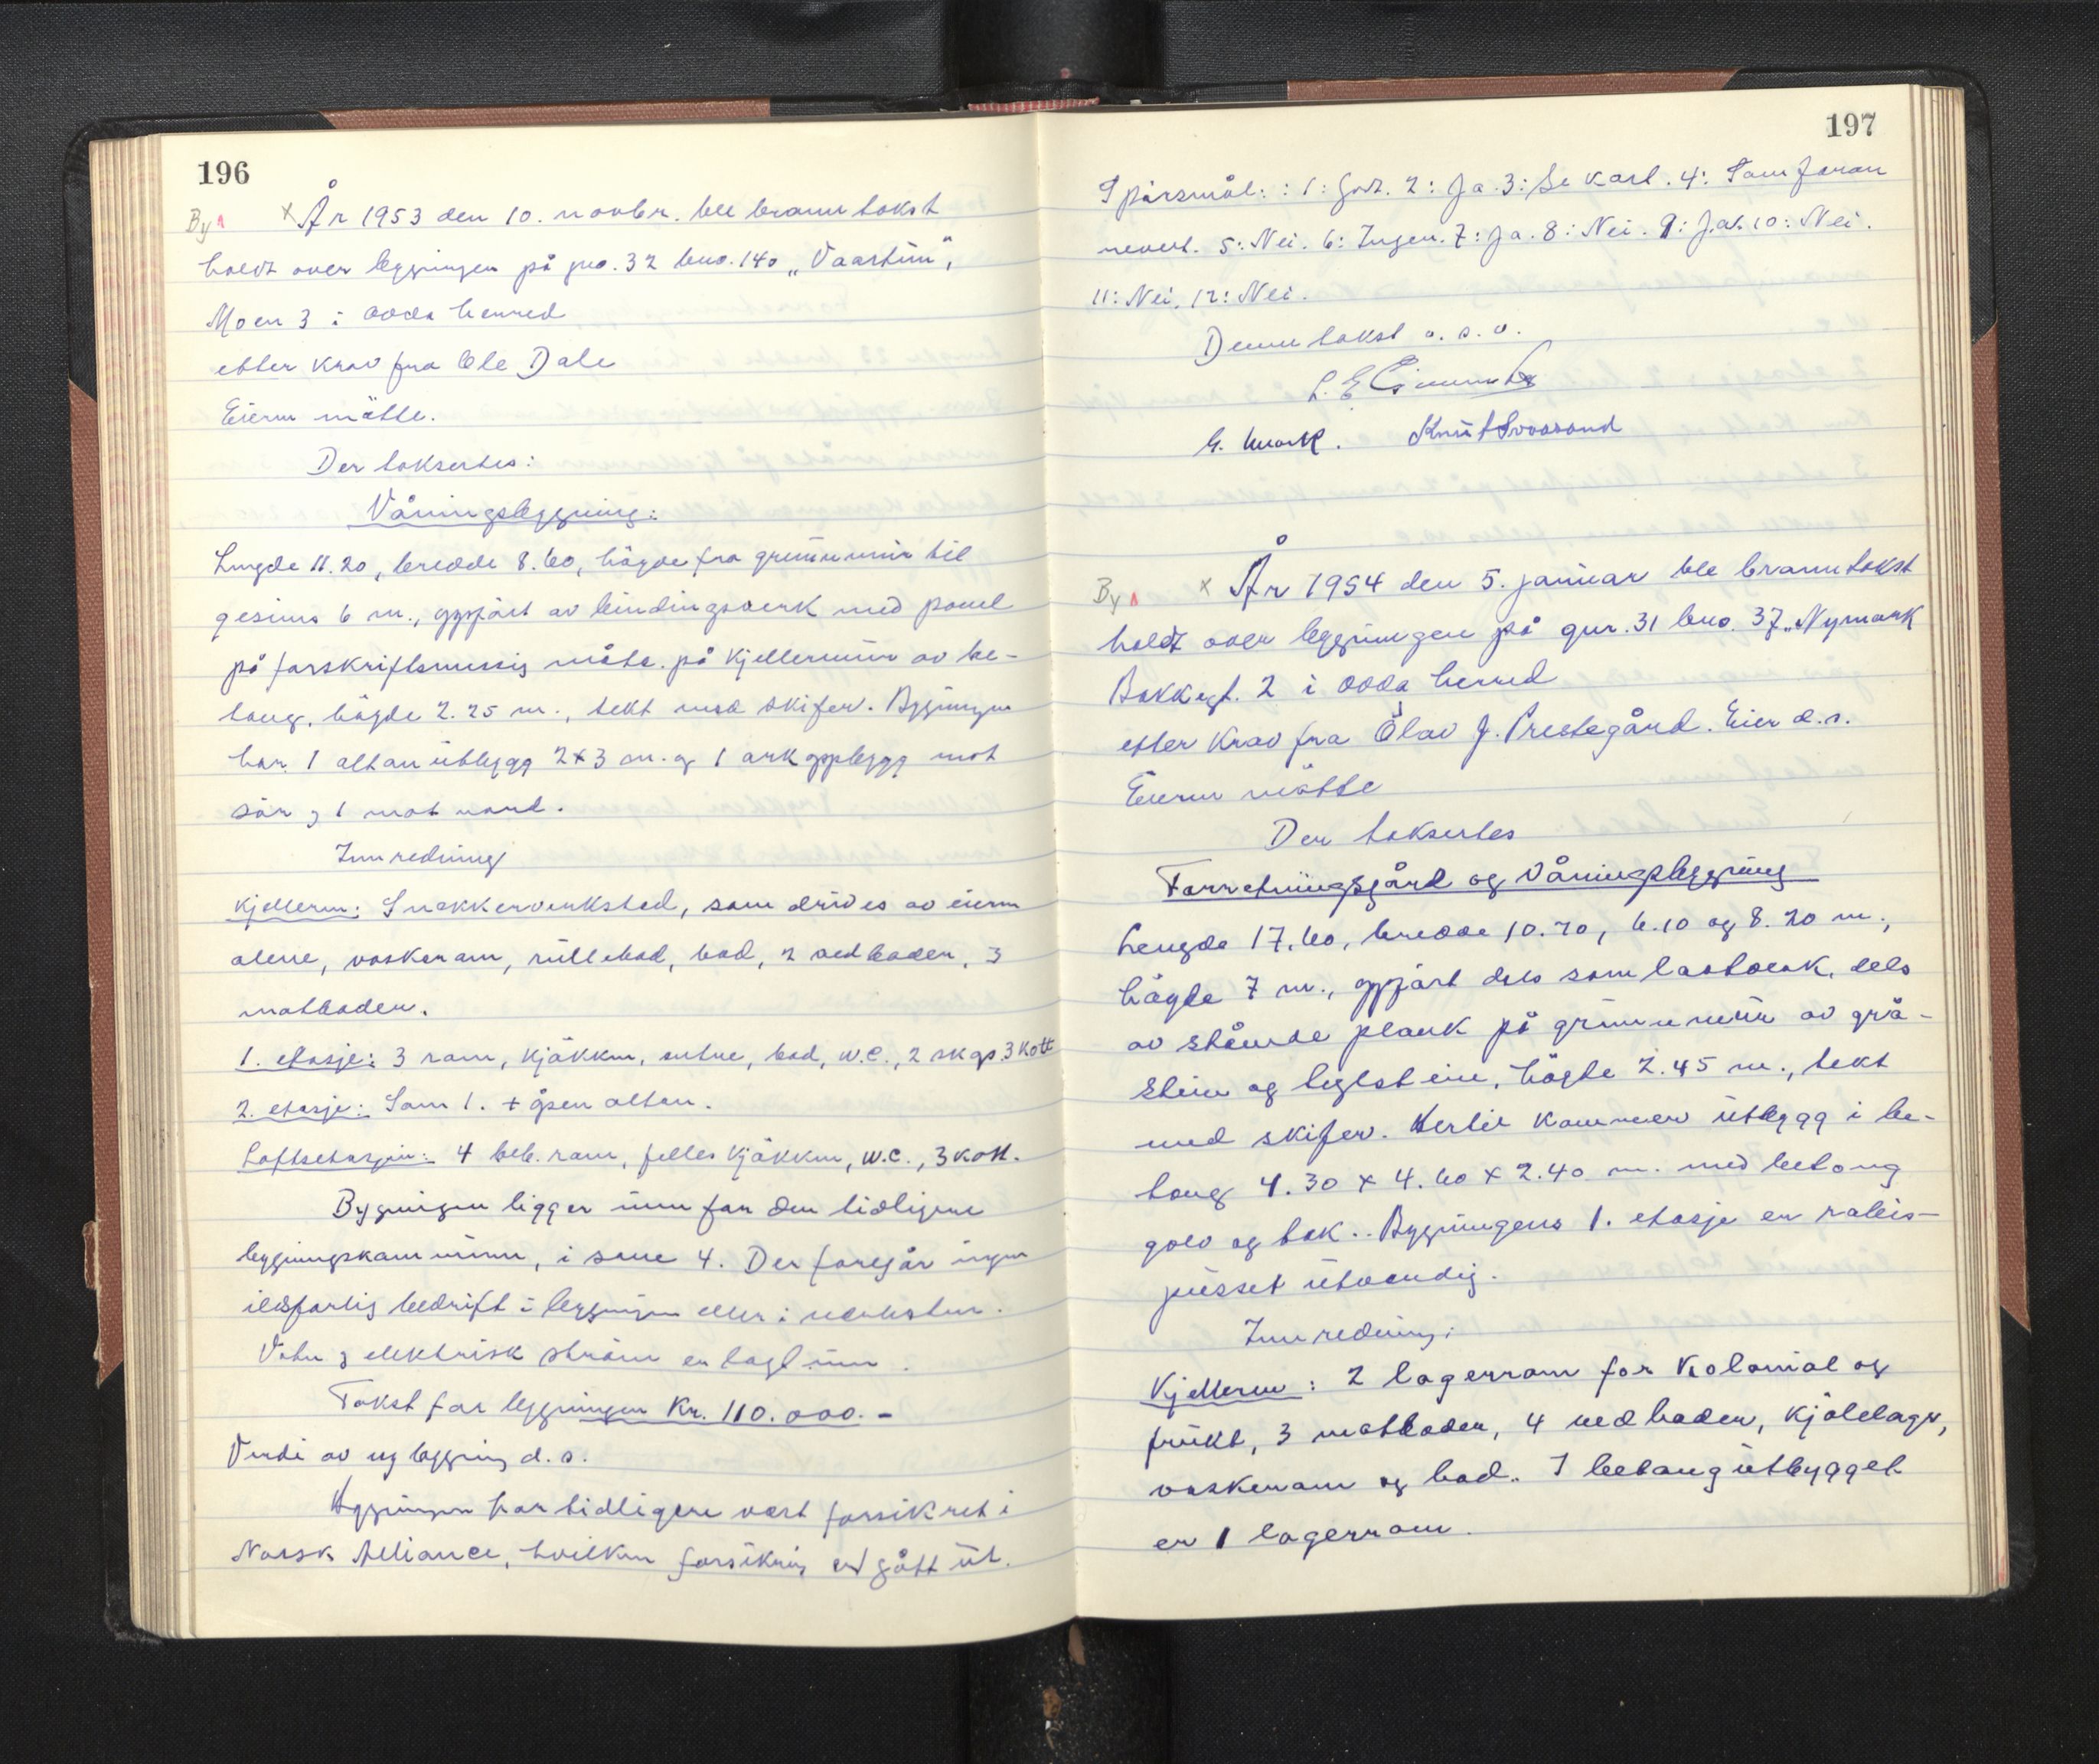 196
By
x År 1953 den 10. novbr. ble branntakst
holdt over bygningen på gno. 32 bno. 140 „Vaartun",
Moen 3 i Odda herred
etter krav fra Ole Dale
Eieren mötte.
Der taksertes:
Våningsbygning:
Lengde 11.20, bredde 8.60, högde fra grunnmur til
gesims 6 m., oppfört av bindingsverk med panel
på forskriftsmessig måte på kjellermur av be-
tong, högde 2.25 m., tekt med skifer. Bygningen
har 1 altanutbygg 2x3 m. og 1 arkoppbygg mot
sör og 1 mot nord.
Innredning
Kjelleren: Snekkerverksted, som drives av eieren
alene, vaskerom, rullebod, bad, 2 vedboder, 3
matboder.
1. etasje: 3 rom, kjökken, entre, bad, w.c., 2 skap. 3 kott
2. etasje: Som 1. + åpen altan.
Loftsetasjen: 4 beb. rom, felles kjökken, w.c., 3 kott.
Bygningen ligger innfor den tidligere
bygningskommunen, i sone 4. Der foregår ingen
ildsfarlig bedrift i bygningen eller i nærheten.
Vatn og elektrisk ström er lagt inn.
Takst for bygningen Kr. 110.000.-
Verdi av ny bygning d.s.
Bygningen har tidligere vært forsikret i
Norsk Alliance, hvilken forsikring er gått ut.
197
Spörsmål: : 1: Godt. 2: Ja. 3: Se kart. 4: Som foran
nevnt. 5: Nei. 6: Ingen. 7: Ja. 8: Nei. 9: Ja. 10: Nei.
11: Nei. 12: Nei.
Denne takst o. s. v.
L. E.
G. Knut
By
x År 1954 den 5. januar ble branntakst
holdt over bygningen på gnr. 31 bno. 37 „Nymark
Bakkegt. 2 i Odda herred
etter krav fra Olav J. Prestegård. Eier d.s.
Eieren mötte
Der taksertes
Forretningsgård og Våningsbygning
Lengde 17.60, bredde 10.70, 6.10 og 8.20 m.,
högde 7 m., oppfört dels som lastverk, dels
av stående plank på grunnmur av grå-
stein og teglstein, högde 2.45 m., tekt
med skifer. Hertil kommer utbygg i be-
tong 4.30 x 4.60 x 2.40 m. med betong
golv og tak.. Bygningens 1. etasje er rabis-
pusset utvendig.
Innredning:
Kjelleren: 2 lagerrom for Kolonial og
frukt, 3 matboder, 4 vedboder, kjölelager,
vaskerom og bad. I betongutbygget
er 1 lagerrom.